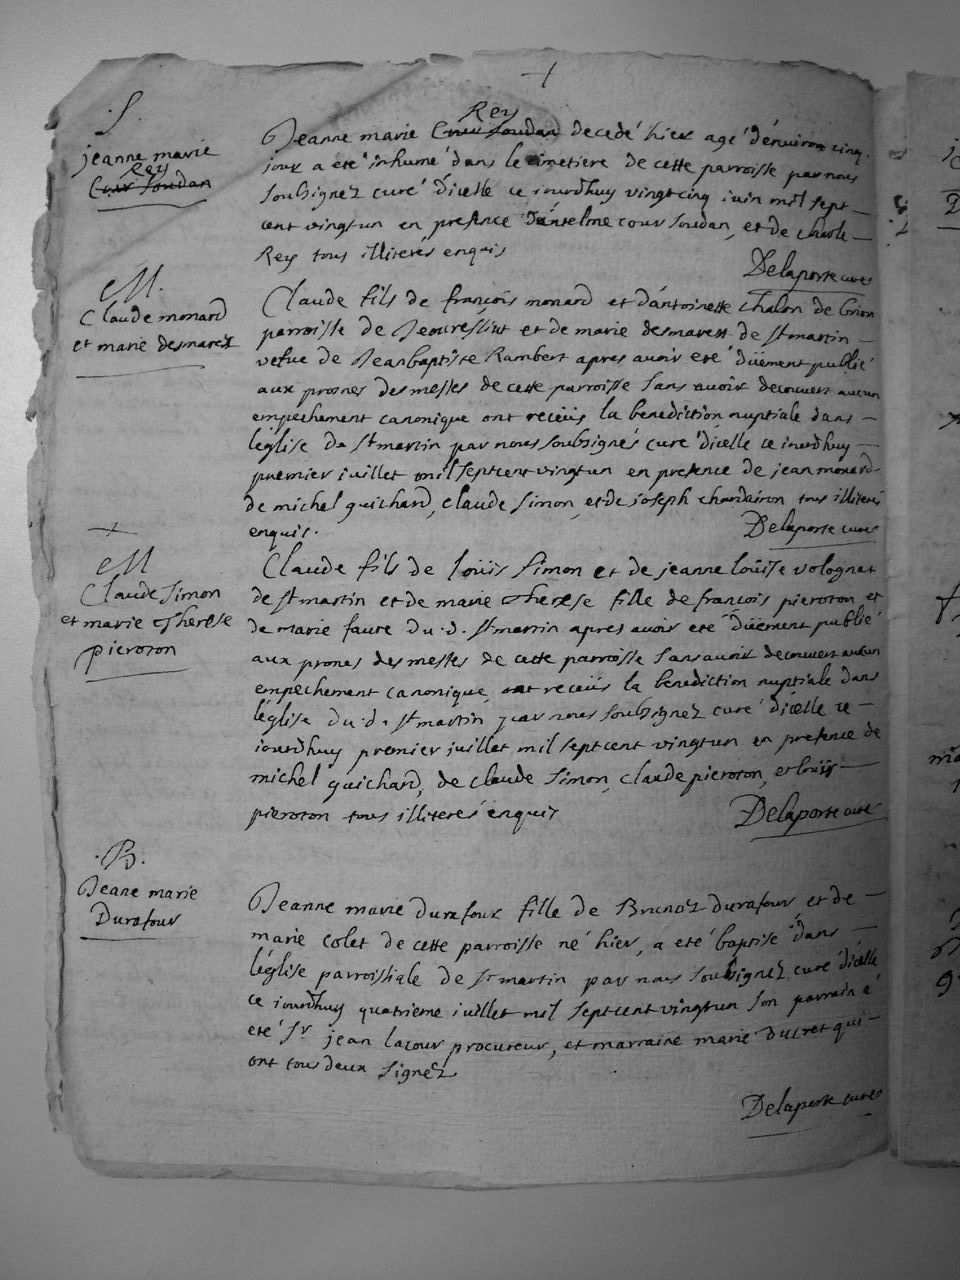 S.
jeanne marie
Rey
Cour soudan
Rey
Jeanne marie Cour soudan decedé hier agé d'environ cinq
jour a eté inhumé dans le cimetiere de cette parroisse par nous
soubsignez curé d'icelle ce jourdhuy vingtcinq juin mil sept
cent vingtun en presence d'anselme cour soudan, et de charle
Rey tous illiterés enquis
Delaporte curé
M.
Claude monard
et marie desmarest
Claude fils de françois monard et d'antoinette chalon de Crion
parroisse de et de marie desmarest de st martin
vefue de Jeanbaptiste Rambert apres avoir eté düement publié
aux prosnes des messes de cette parroisse sans avoir decouvert aucun
empechement canonique ont receüs la benediction nuptiale dans
l'eglise de st martin par nous soubsignés curé d'icelle ce jourdhuy
premier juillet mil septcent vingtun en presence de jean monard
de michel guichard, claude simon, et de joseph chardairon tous illiterés
enquis.
Delaporte curé
M
Claude simon
et marie therese
pieroton
Claude fils de loüis simon et de jeanne loüise volognat
de st martin et de marie therese fille de françois pieroton et
de marie faure du .d. st martin apres avoir eté düement publié
aux prones des messes de cette parroisse sans avoir decouvert aucun
empechement canonique, ont receüs la benediction nuptiale dans
l'eglise du .d. st martin par nous soubsignez curé d'icelle ce
jourdhuy premier juillet mil septcent vingtun en presence de
michel guichard, de claude simon, claude pieroton, et loüis
pieroton tous illiterés enquis
Delaporte curé
.B.
Jeane marie
Durafour
Jeanne marie durafour fille de Brunoz durafour et de
marie colet de cette parroisse né hier, a eté baptisé dans
l'eglise parroissiale de st martin par nous soubsignez curé d'icelle
ce jourdhuy quatrieme juillet mil septcent vingtun son parrain a
eté sr jean lacour procureur, et marraine marie ducret qui
ont tous deux signéz
Delaporte curé